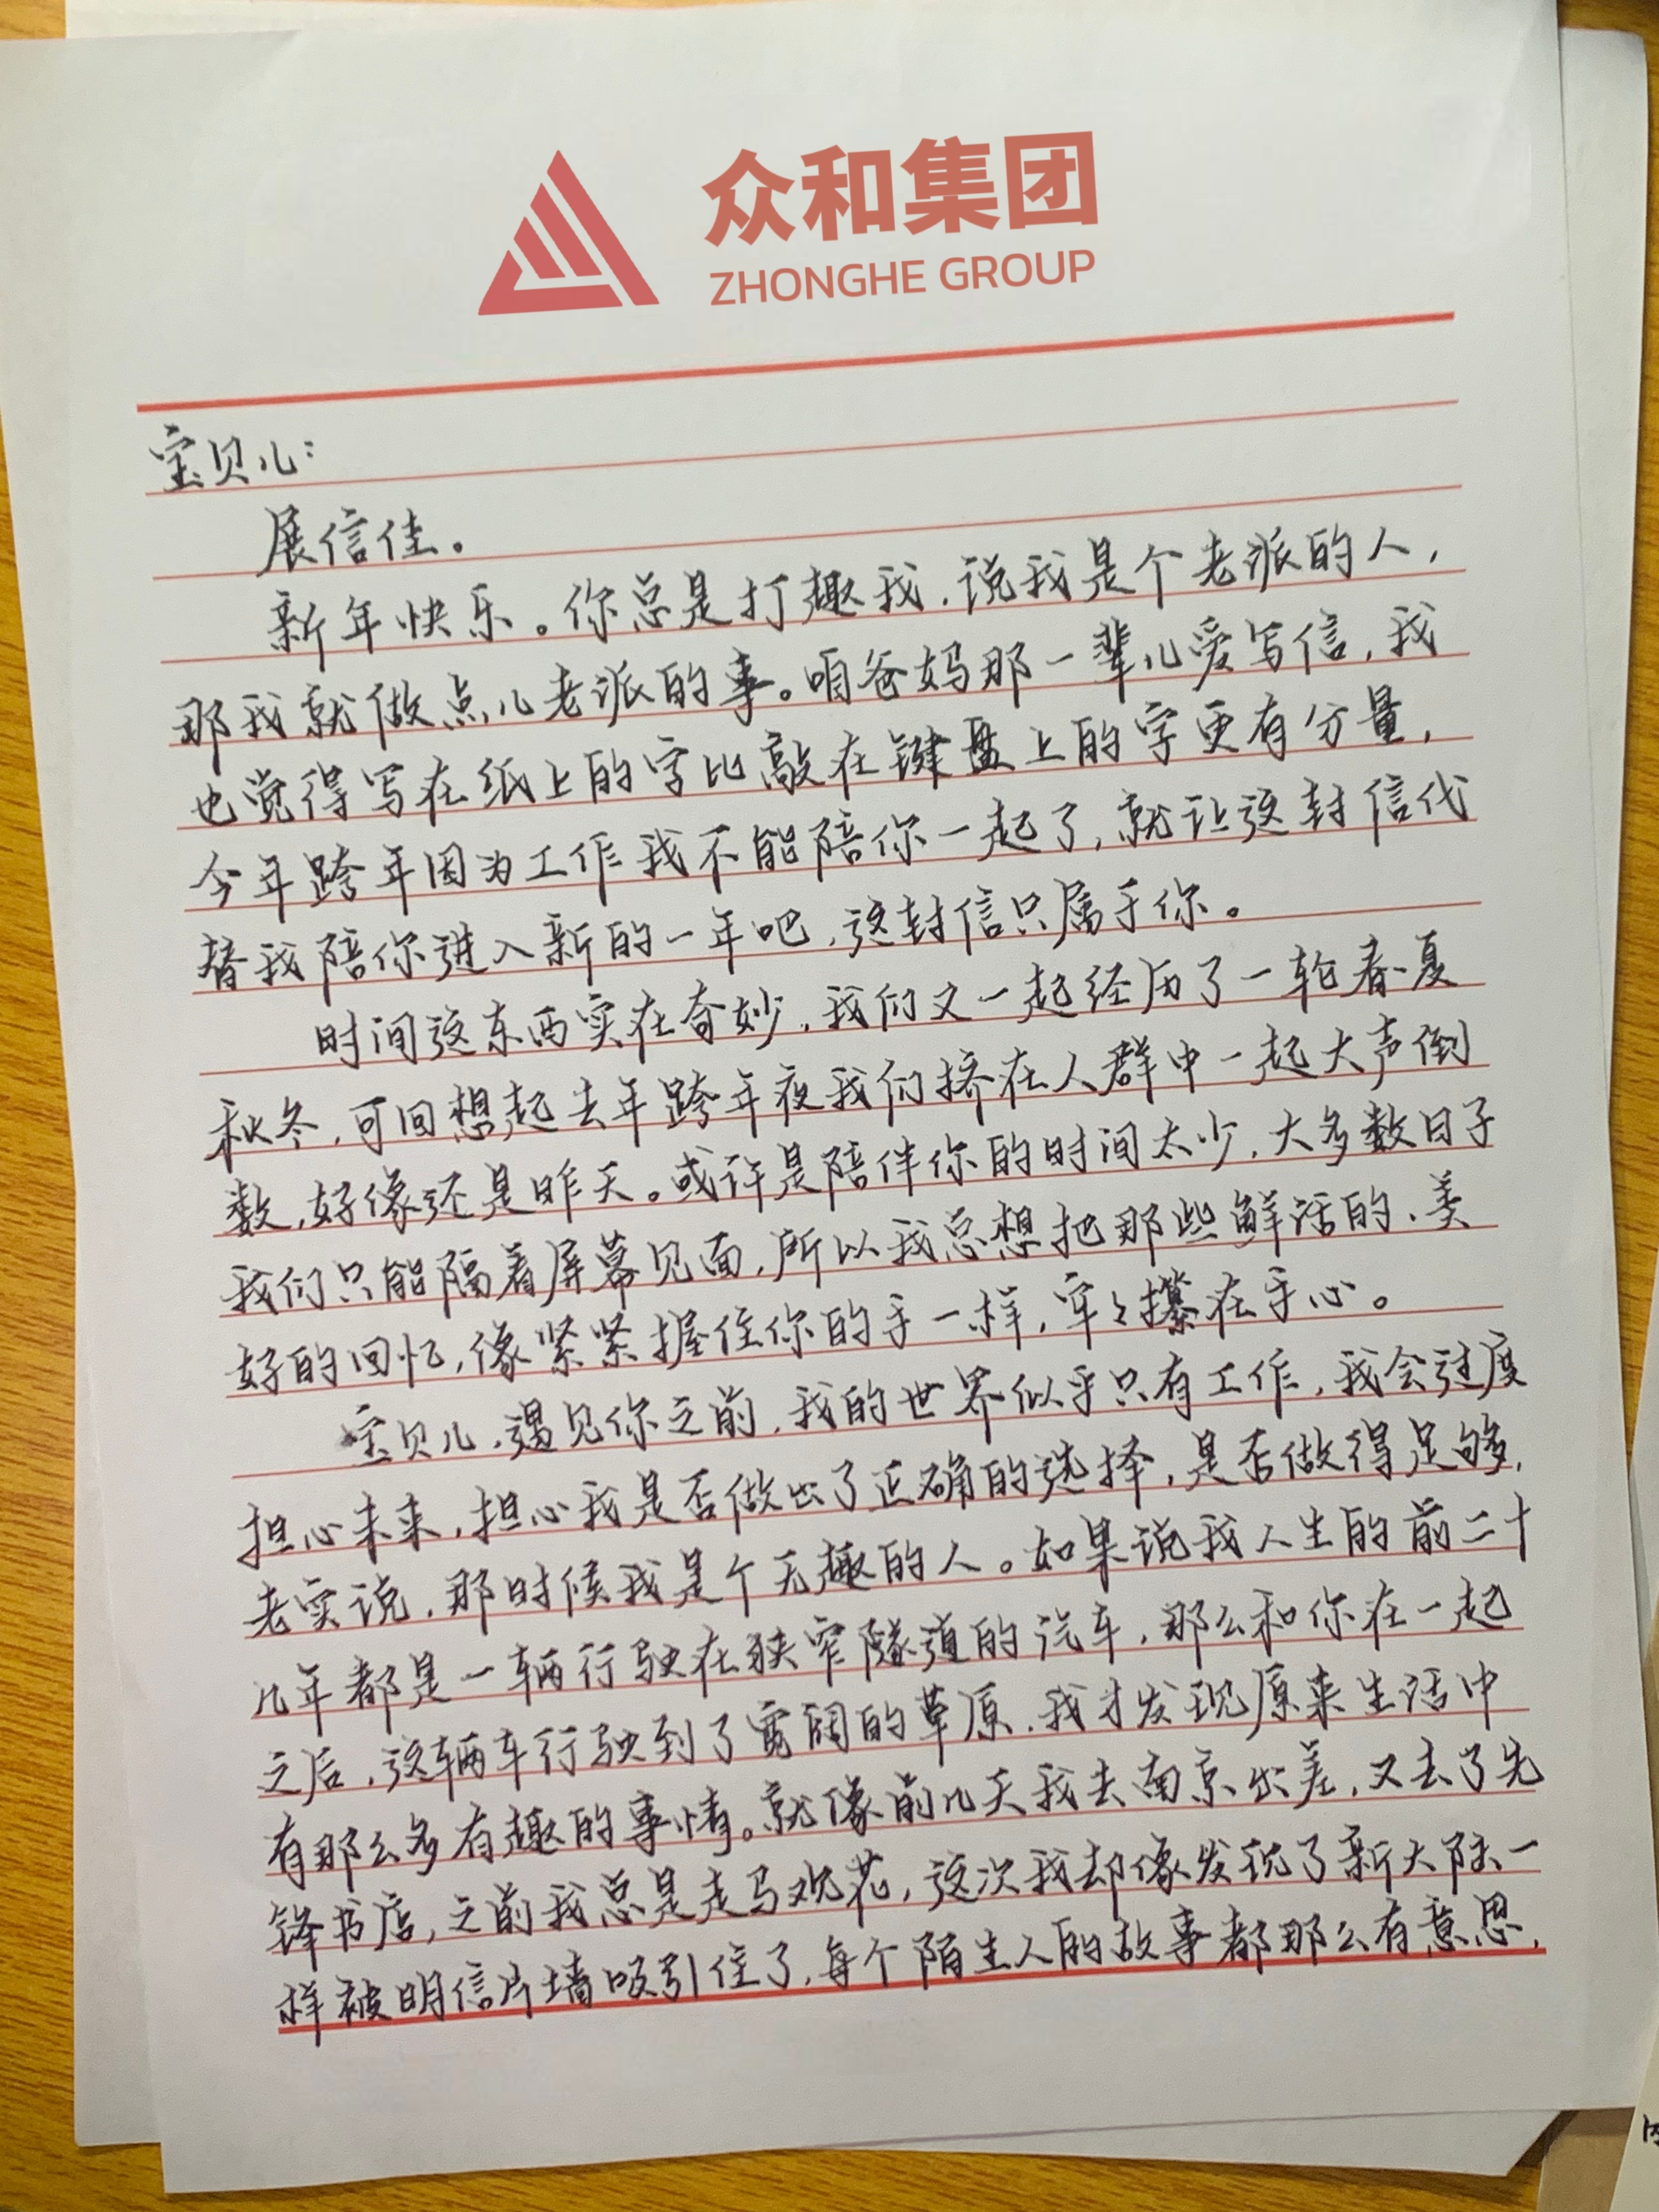 众和集团
ZHONGHE GROUP
宝贝儿：
展信佳。
新年快乐。你总是打趣我，说我是个老派的人，
那我就做点儿老派的事。咱爸妈那一辈儿爱写信，我
也觉得写在纸上的字比敲在键盘上的字更有分量，
今年跨年因为工作我不能陪你一起了，就让这封信代
替我陪你进入新的一年吧，这封信只属于你。
时间这东西实在奇妙，我们又一起经历了一轮春夏
秋冬，可回想起去年跨年夜我们挤在人群中一起大声倒
数，好像还是昨天。或许是陪伴你的时间太少，大多数日子
我们只能隔着屏幕见面，所以我总想把那些鲜活的、美
好的回忆，像紧紧握住你的手一样，牢々攥在手心。
宝贝儿，遇见你之前，我的世界似乎只有工作，我会过度
担心未来，担心我是否做出了正确的选择，是否做得足够，
老实说，那时候我是个无趣的人。如果说我人生的前二十
几年都是一辆行驶在狭窄隧道的汽车，那么和你在一起
之后，这辆车行驶到了宽阔的草原，我才发现原来生活中
有那么多有趣的事情。就像前几天我去南京出差，又去了先
锋书店，之前我总是走马观花，这次我却像发现了新大陆一
样被明信片墙吸引住了，每个陌生人的故事都那么有意思，